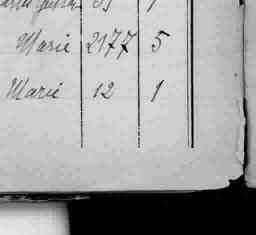 Marie 2177 5
Marie 12 1